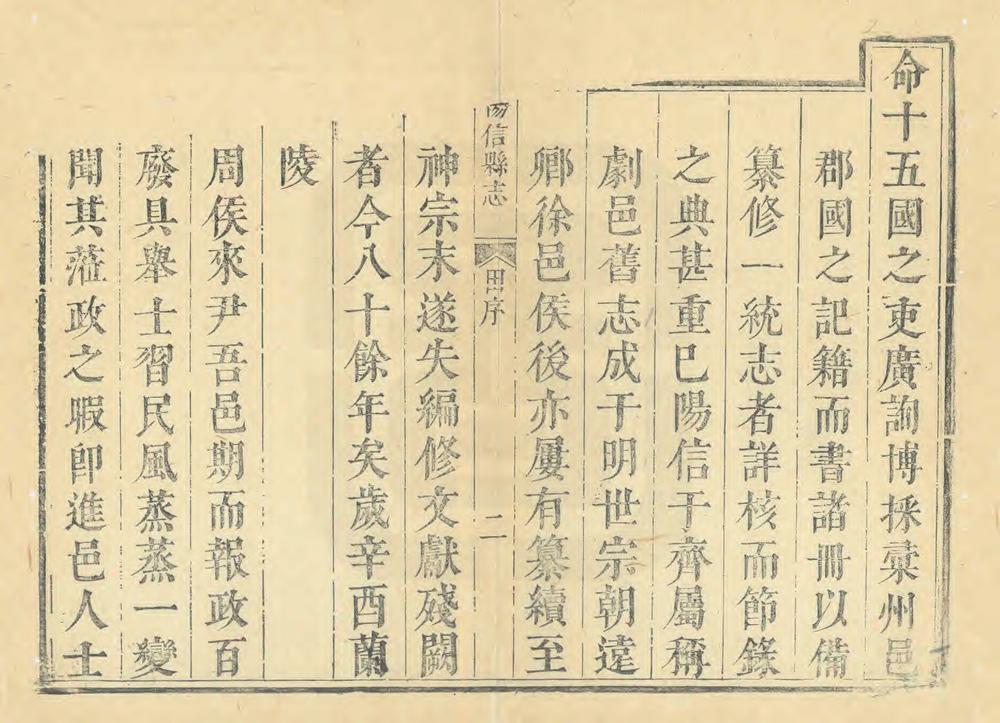 命十五國之吏廣詢博採彙州邑
郡國之記籍而書諸冊以備
纂修一統志者詳核而節錄
之典甚重巳陽信于齊屬稱
劇邑舊志成于明世宗朝遠
鄉徐邑侯後亦屢有纂續至
陽信縣志 田序 二
神宗末遂失編修文獻殘闕
者今八十餘年矣歲辛酉蘭
陵
周侯來尹吾邑期而報政百
廢具舉士習民風蒸蒸一變
聞其蒞政之暇卽進邑人士